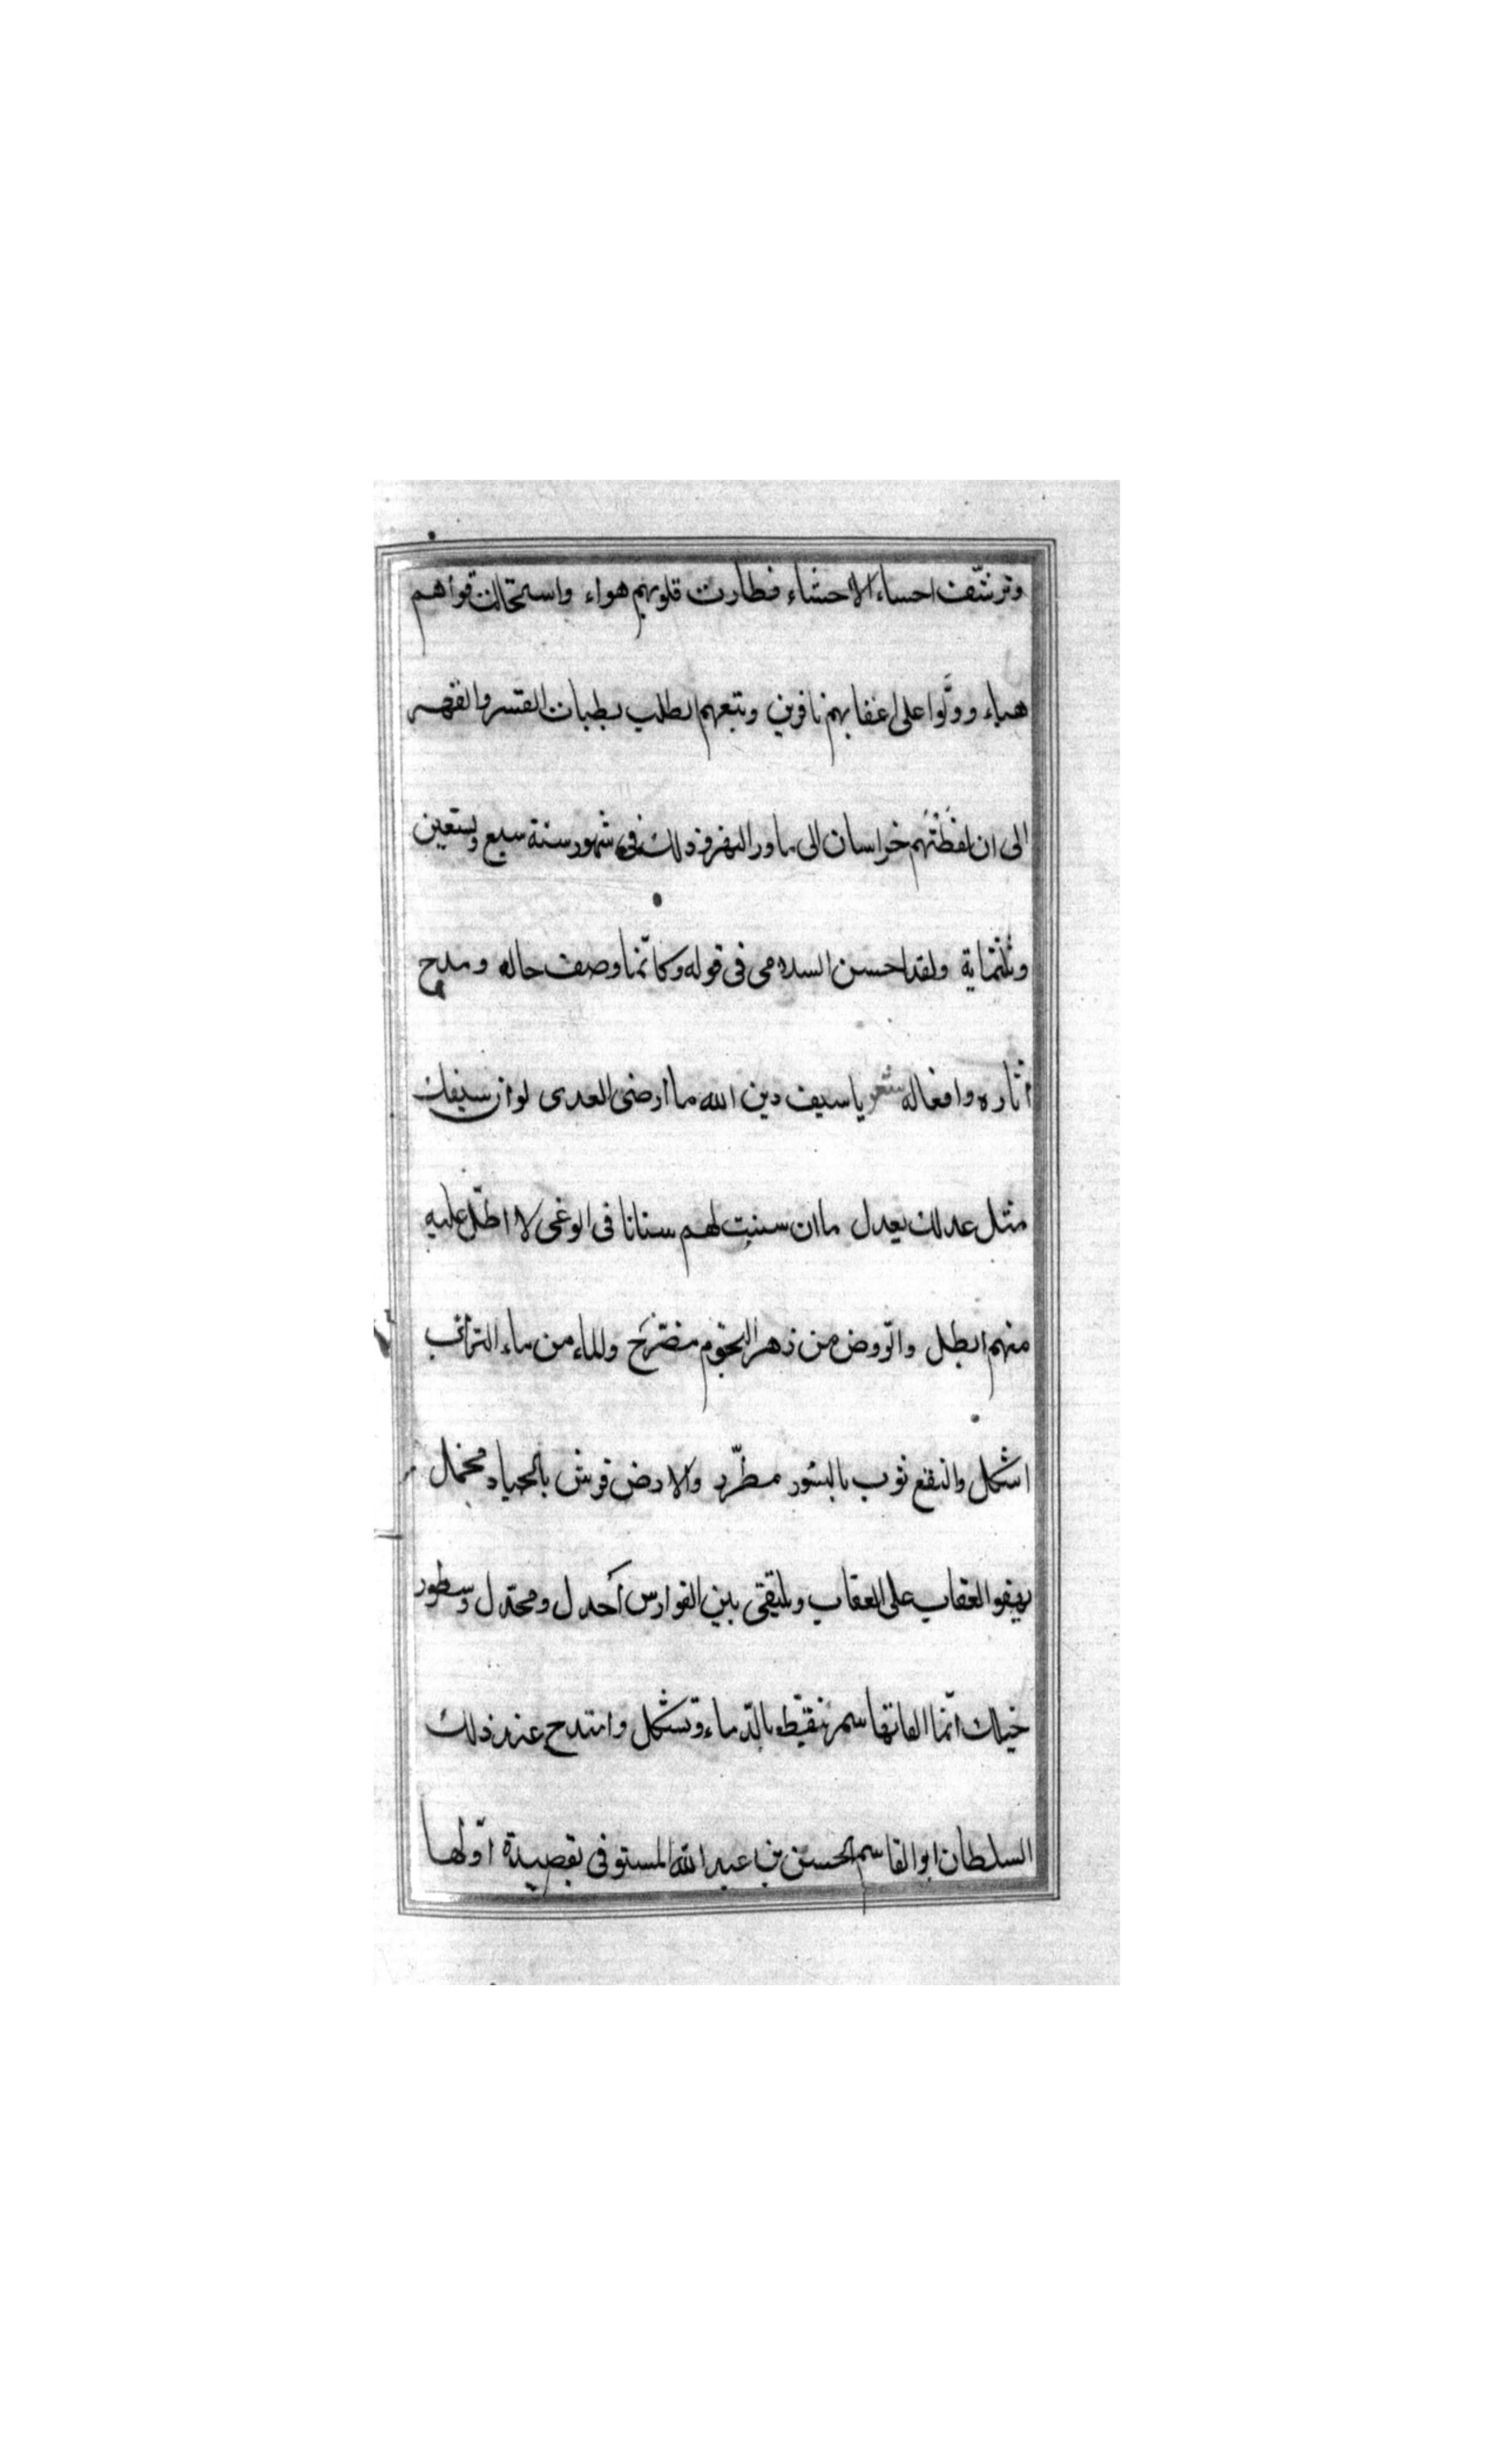 وترشّف احساء الاحشاء فطارت قلوبهم هواء واستحالت قواهم
هباء وولَّوا على اعقابهم نافرين وتبعهم الطلب بطبات القسر والقهر
الى ان لفظَتْهُم خراسان الى ماورالنهر وذلك فى شهور سنة سبع وتسعين
وثلثماية ولقد احسن السلامى فى قوله وكانّما وصف حاله ومدح
أثاره وافعاله شعر يا سيف دين الله ما ارضى العدى لو ان سيفك
مثل عدلك يعدل ما ان سننت لهم سنانا فى الوغى لا اطلّ عليه
منهم ابطل والرّوض من زهر النجوم مضرّج وللماء من ماء الترائب
اشكل والنقع ثوب بالنسور مطرّز والارض فرش بالجياد مخمل
يهفو العقاب على العقاب ويلتقى بين الفوارس أجدل ومجدّل وسطور
خيلك انّما الفاتها سمر تنقّط بالدّماء وتشكل وامتدح عند ذلك
السلطان ابو القاسم الحسن بن عبد الله المستوفى بقصيدة اوّلها